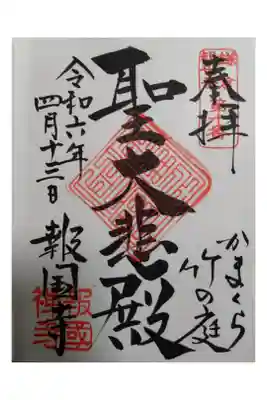 奉拝
かまくら
竹の庭
聖大悲殿
令和六年
四月十三日
報国寺